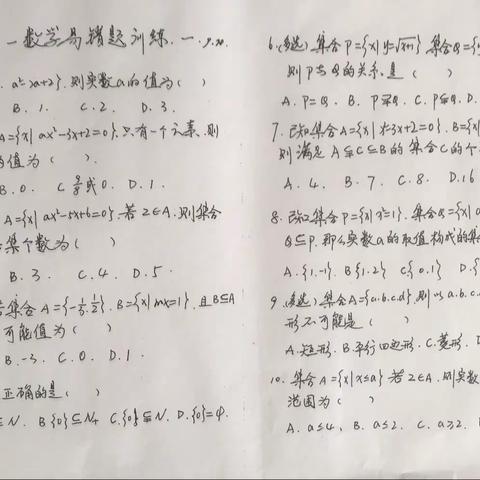 一数学易错题训练.一. 9.20.
a²-2a+2}.则实数a的值为( )
B. 1. C. 2. D. 3.
A={x|ax²-3x+2=0}.只有一个元素.则
值为( ).
B. 0. C 9/8或0. D. 1.
A={x|ax²-5x+6=0}.若2∈A.则集合
集个数为( )
B. 3. C. 4. D. 5.
集合A={-1/3.1/2}. B={x|mx=1}.且B⊆A
可能值为( )
B. -3. C. 0. D. 1.
正确的是( )
N. B{0}⊆N₊ C.{0}⫋N. D.{0}=φ.
6.(多选)集合P={x|y=√x+1} 集合Q={
则P与Q的关系是( )
A. P=Q. B. P⫌Q. C. P⫋Q. D.
7.已知集合A={x|x²-3x+2=0}. B={x|
则满足A⫋C⊆B的集合C的个
A. 4. B. 7. C. 8. D.16
8.已知集合P={x|x²=1}.集合Q={x|a
Q⊆P.那么实数a的取值构成的集
A.{1.-1}. B{1.2} C{0.1} D.{
9.(多选)集合A={a.b.c.d}.则以a.b.c.
形不可能是( )
A.矩形. B.平行四边形. C.菱形. D
10.集合A={x|x≤a} 若2∈A.则实数
范围为( )
A. a≤4. B. a≤2. C. a≥2.